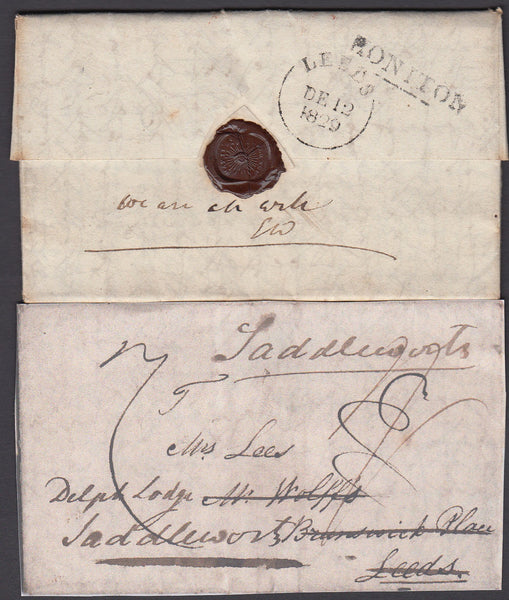 HONITON
LEEDS
DE 12
1829
we are all well
EW
Saddleworth
Mrs Lees
Delph Lodge Mr Wolff's
Saddleworth Brunswick Place
Leeds.